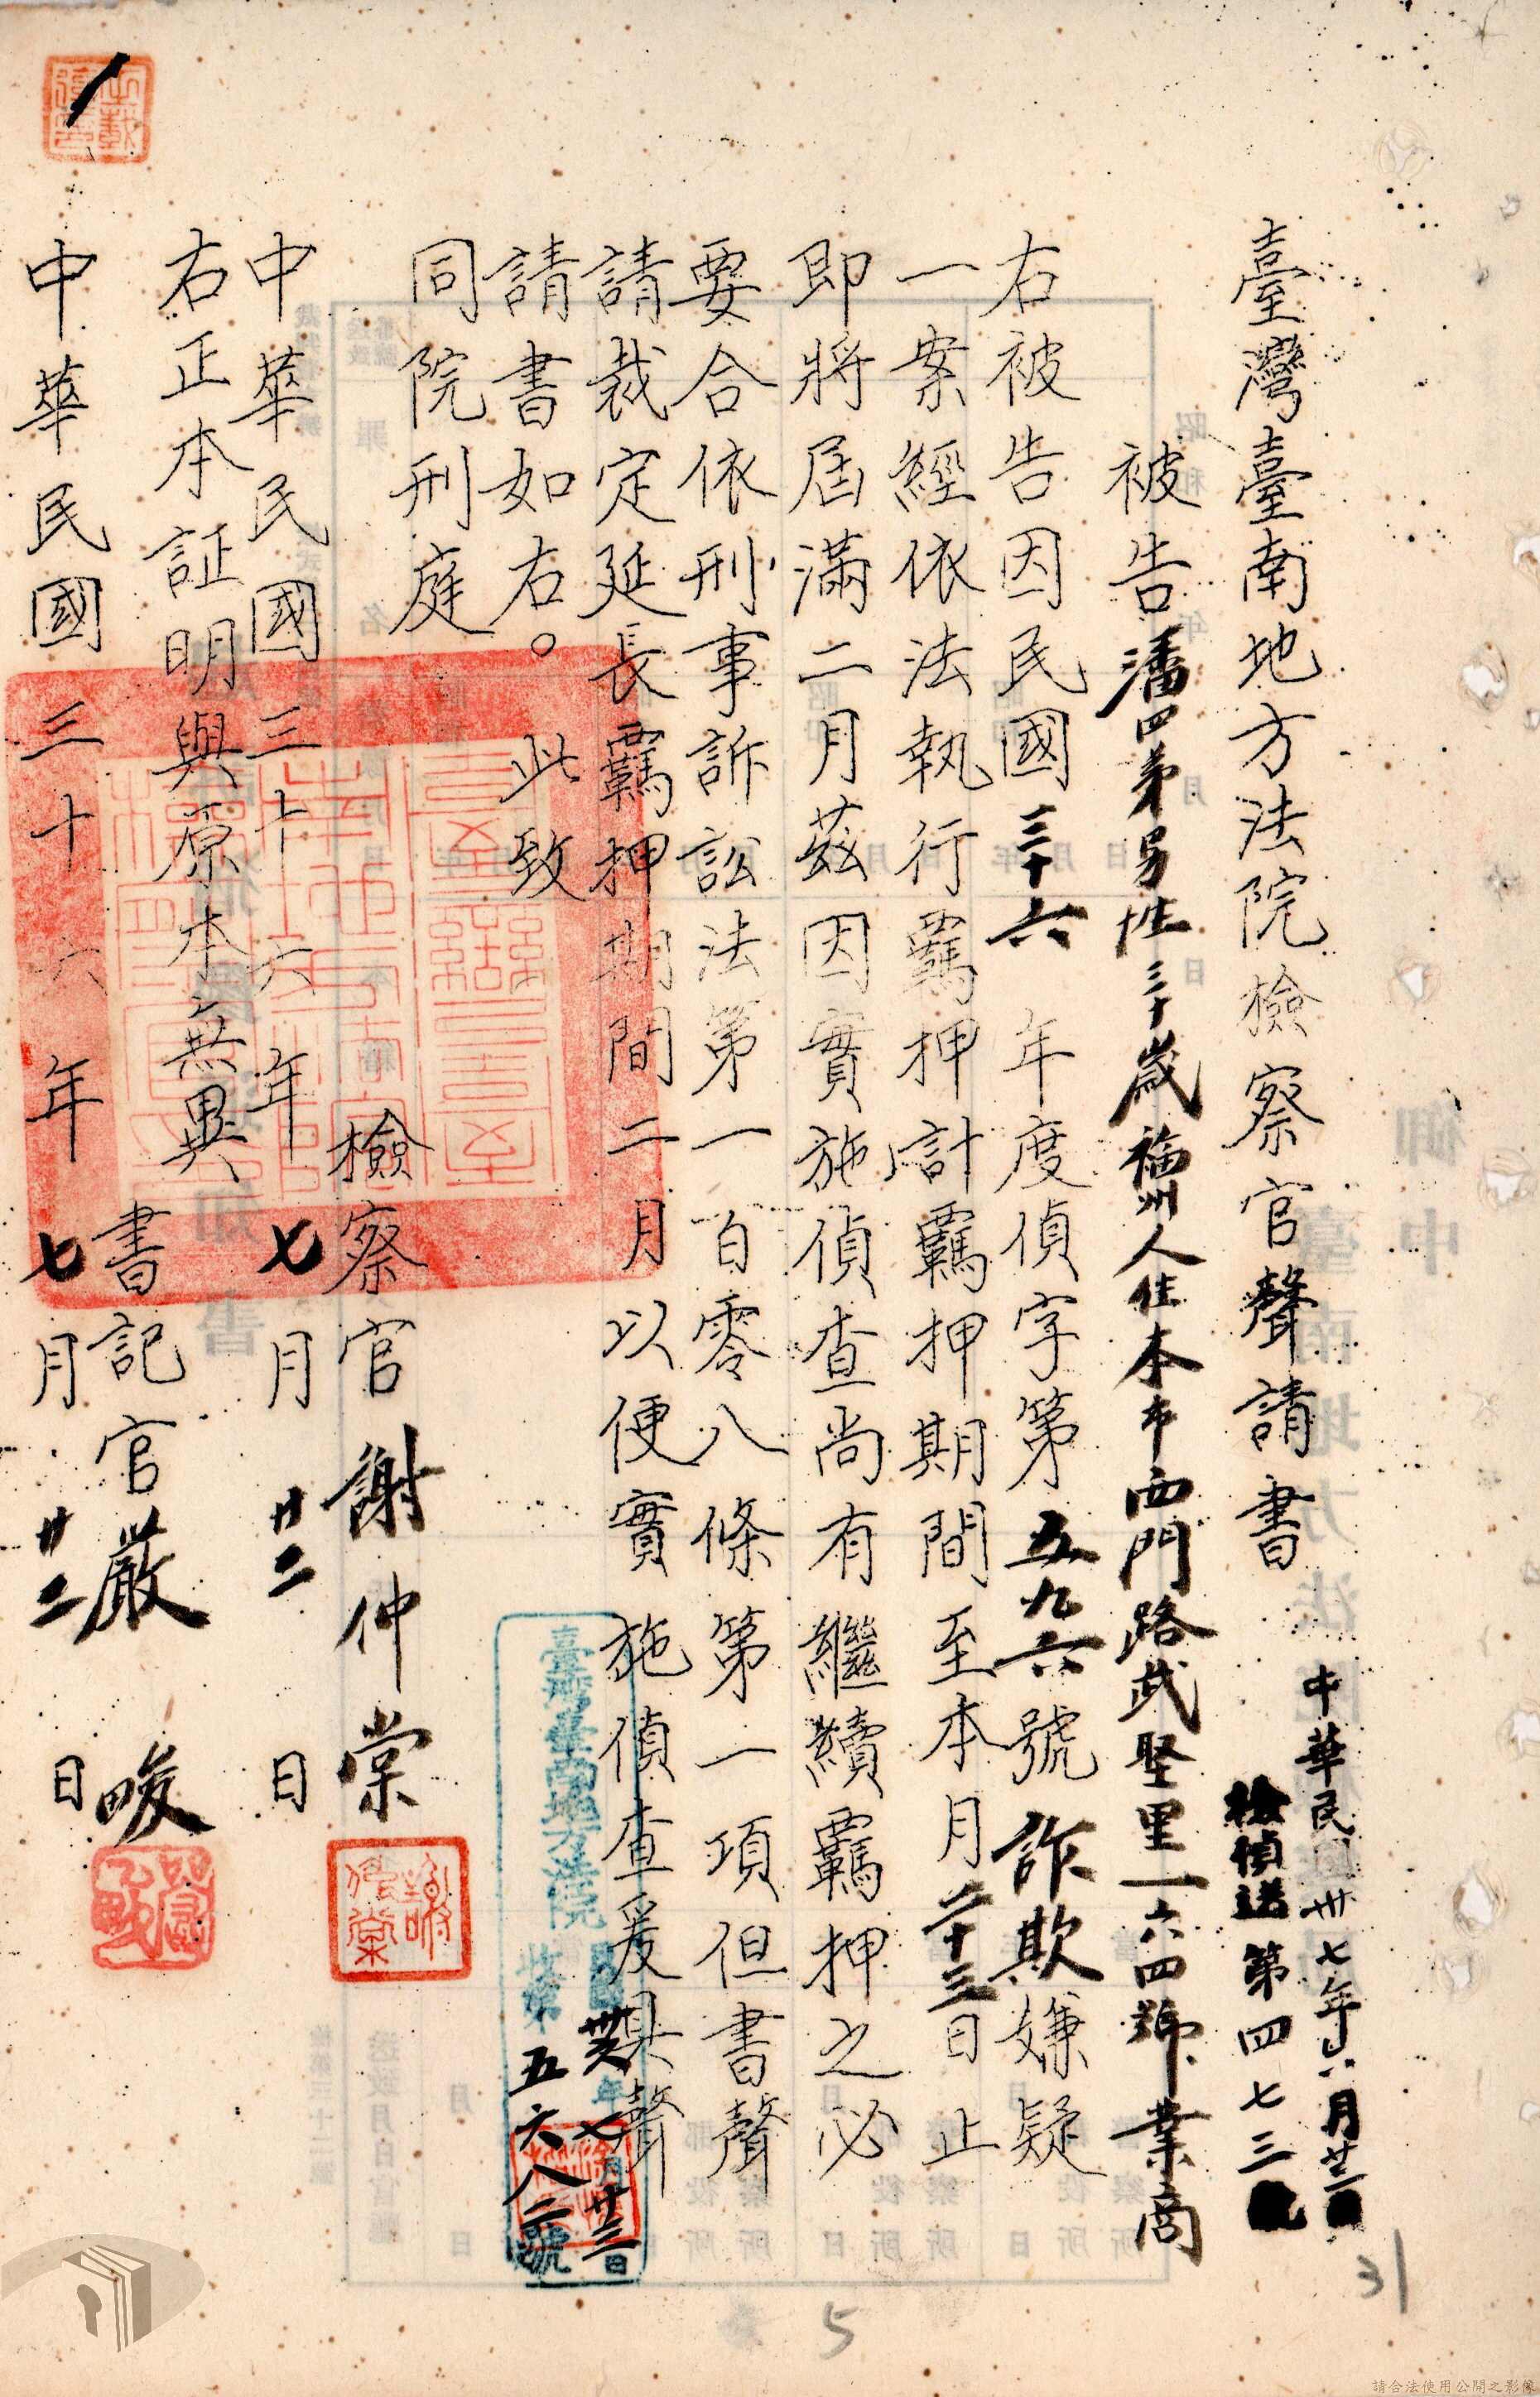 臺灣臺南地方法院檢察官聲請書
中華民國卅七年 月廿二
檢偵送第四七三號
被告潘四弟男性三十歲福州人住本市西門路武聖里一六四號業商
右被告因民國三十六年度偵字第五九六號詐欺嫌疑
一案經依法執行羈押計羈押期間至本月二十三日止
即將屆滿二月茲因實施偵查尚有繼續羈押之必
要合依刑事訴訟法第一百零八條第一項但書聲
請裁定延長羈押期間二月以便實施偵查爰具聲
請書如右。此致
同院刑庭
臺灣臺南地方法院
年七月廿三日
第五六八二號
檢察官謝仲棠
謝仲棠
中華民國三十六年七月廿二日
右正本証明與原本無異
書記官嚴畯
中華民國三十六年七月廿二日
5
31
請合法使用公開之影像